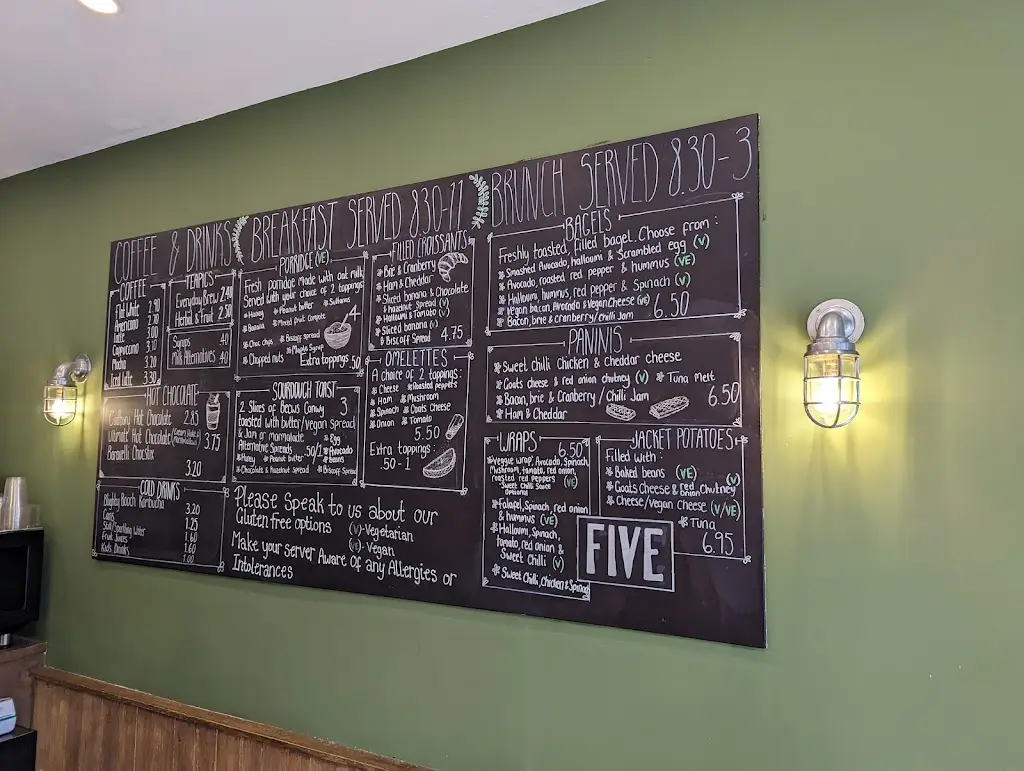 COFFEE & DRINKS
COFFEE
Flat White 2.90
Americano 2.70
Latte 3.00
Cappuccino 3.10
Mocha 3.20
Iced Latte 3.30
TEAPIGS
Everyday Brew 2.40
Herbal & Fruit 2.50
Syrups .40
Milk Alternatives .40
HOT CHOCOLATE
Hot Chocolate 2.85
Ultimate Hot Chocolate 3.75
3.20
COLD DRINKS
Blighty Booch Kombucha 3.20
Cans 1.25
Still/Sparkling Water
Fruit Juices 1.60
Kids Drinks 1.00
BREAKFAST SERVED 8.30-11
PORRIDGE (VE)
Fresh porridge made with oat milk
Served with your choice of 2 toppings
Honey Peanut butter Sultanas
Banana Mixed fruit compote 4
Choc chips Biscoff spread
Chopped nuts Maple Syrup
Extra toppings .50
SOURDOUGH TOAST
2 Slices of Becws Conwy 3
toasted with butter/vegan spread
& Jam or marmalade
Alternative Spreads .50/1
Egg
Honey Peanut butter Avocado
beans
Chocolate & hazelnut spread Biscoff Spread
FILLED CROISSANTS
Brie & Cranberry
Ham & Cheddar
Sliced banana & Chocolate
& hazelnut Spread (V)
Halloumi & Tomato (V)
Sliced banana (V)
& Biscoff Spread 4.75
OMELETTES
A choice of 2 toppings:
Cheese Roasted peppers
Ham Mushroom
Spinach Goats Cheese
Onion Tomato
5.50
Extra toppings:
.50-1
Please Speak to us about our
Gluten free options (V)-Vegetarian
(VE)-Vegan
Make your server Aware of any Allergies or
Intolerances
BRUNCH SERVED 8.30-3
BAGELS
Freshly toasted, filled bagel. Choose from:
Smashed Avocado, halloumi & Scrambled egg (V)
Avocado, roasted red pepper & hummus (VE)
Halloumi, hummus, red pepper & Spinach (V)
Vegan bacon, Avocado & Vegan Cheese (VE)
Bacon, brie & cranberry/Chilli Jam 6.50
PANINIS
Sweet chilli Chicken & Cheddar cheese
Goats cheese & red onion chutney (V) Tuna Melt
Bacon, brie & Cranberry / Chilli Jam 6.50
Ham & Cheddar
WRAPS 6.50
Veggie wrap, Avocado, Spinach,
Mushroom, tomato, red onion,
roasted red peppers (VE)
Sweet Chilli Sauce
Optional
Falafel, Spinach, red onion
& hummus (VE)
Halloumi, Spinach,
tomato, red onion &
Sweet Chilli (V)
Sweet Chilli, Chicken & Spinach
JACKET POTATOES
Filled with:
Baked beans (VE)
Goats Cheese & red Onion Chutney (V)
Cheese/vegan Cheese (V/VE)
Tuna
6.95
FIVE